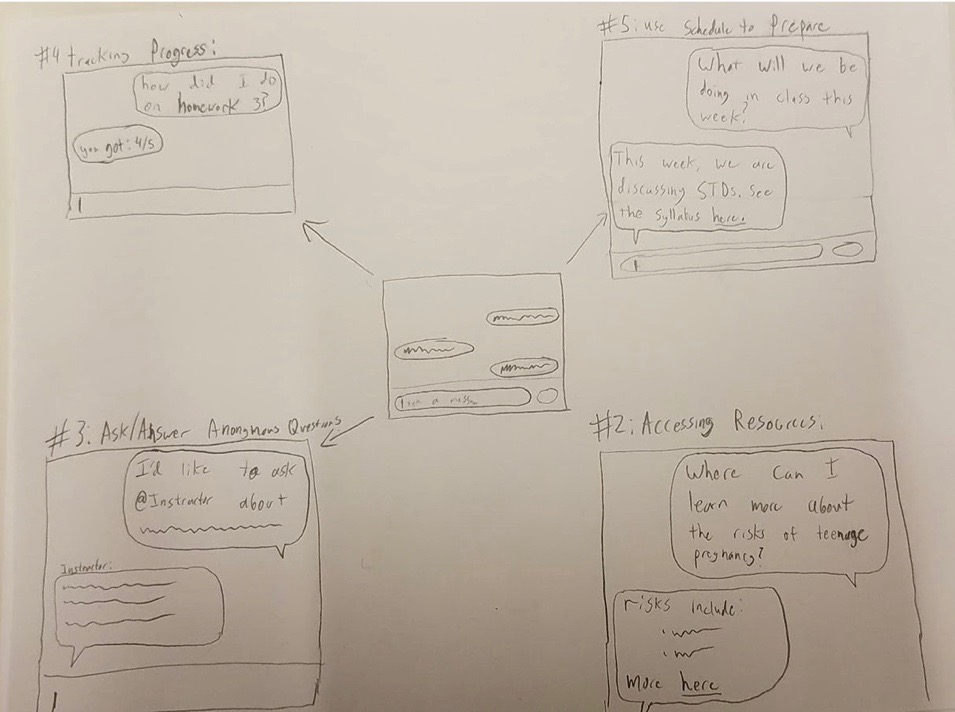 #4 tracking Progress:
how did I do
on homework 3?
you got: 4/5
#5: use Schedule to Prepare
What will we be
doing in class this
week?
This week, we are
discussing STDs. See
the syllabus here.
#3: Ask/Answer Anonymous Questions
I'd like to ask
@Instructor about
Instructor:
#2: Accessing Resources:
Where can I
learn more about
the risks of teenage
pregnancy?
risks include:
more here